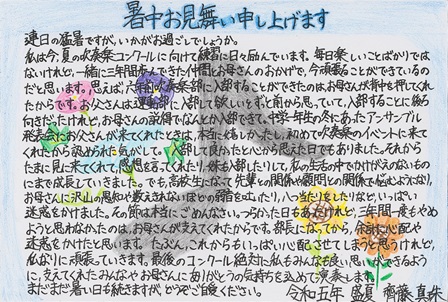 暑中お見舞い申し上げます
連日の猛暑ですが、いかがお過ごしでしょうか。
私は今、夏の吹奏楽コンクールに向けて練習に日々励んでいます。毎日楽しいことばかりでは
ないけれど、一緒に三年間やってきた仲間とお母さんのおかげで、今頑張ることができているの
だと思います。思えば、吹奏楽部に入部することができたのは、お母さんが背中を押してくれ
たからです。お父さんは運動部に入部して欲しいとずっと前から思っていて、入部することに後ろ
向きだったけれど、お母さんの説得でなんとか入部できて、中学一年生の冬にあったアンサンブル
発表会にお父さんが来てくれたときは、本当に嬉しかったし、初めて吹奏楽のイベントに来て
くれたから認められた気がして、入部して良かったと心から思えた日でもありました。それから
たまに見に来てくれて、感想を言ってくれたり、妹も入部したりして、私の生活の中でかけがえのないもの
にまで成長していきました。でも、高校生になって先輩との関係や顧問との関係で悩むようになり、
お母さんに沢山の愚知や数えきれないほどの弱音を吐いたり、八つ当たりをしたりなど、いっぱい
迷惑をかけました。その節は本当にごめんなさい。つらかった日もあったけれど、三年間一度もやめ
ようと思わなかったのは、お母さんが支えてくれたからです。部長になってから、余計に心配や
迷惑をかけたと思います。たぶん、これからもいっぱい心配させてしまうと思うけれど、
私なりに頑張っていきます。最後のコンクール絶対に私もみんなも良い思いができるよう
に、支えてくれたみんなやお母さんにありがとうの気持ちを込めて演奏します。
まだまだ暑い日も続きますが、どうぞご自愛ください。
令和五年 盛夏 齊藤 真